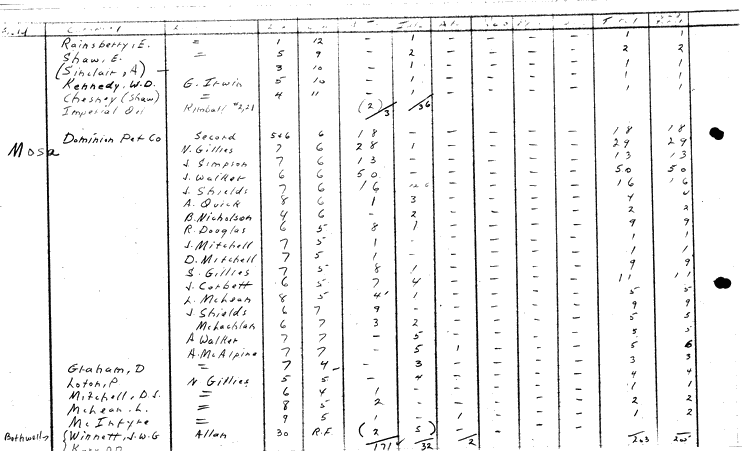 Rainsberry, E. = 1 12 - 1 - - - - 1 1
Shaw, E. = 5 9 - 2 - - - - 2 2
(Sinclair, A) - 3 10 - 1 - - - - 1 1
Kennedy, W.D. G. Irwin 5 10 - 1 - - - - 1 1
Chesney (Shaw) = 4 11 - 1 - - - - 1 1
Imperial Oil Kimball #2,21 (2)/3 /36
Mosa
Dominion Pet Co Second 5+6 6 18 - - - - - 18 18
N. Gillies 7 6 28 1 - - - - 29 29
J. Simpson 7 6 13 - - - - - 13 13
J. Walker 6 6 50 - - - - - 50 50
J. Shields 7 6 16 - - - - 16 16
A. Quick 8 6 1 3 - - - - 4 4
B. Nicholson 4 6 - 2 - - - - 2 2
R. Douglas 6 5 8 1 - - - - 9 9
J. Mitchell 7 5 1 - - - - - 1 1
D. Mitchell 7 5 1 - - - - - 1 1
S. Gillies 7 5 8 1 - - - - 9 9
J. Corbett 6 5 7 4 - - - - 11 11
L. McLean 8 5 4 1 - - - - 5 5
J. Shields 6 7 9 - - - - - 9 9
McLachlan 6 7 3 2 - - - - 5 5
A Walker 7 7 - 5 - - - - 5 5
A. McAlpine 7 7 - 5 1 - - - 5 6
Graham, D = 7 4 - 3 - - - - 3 3
Loton, P N Gillies 5 5 - 4 - - - - 4 4
Mitchell, D.S. = 6 4 1 - - - - - 1 1
McLean, L. = 8 5 2 - - - - - 2 2
McIntyre = 9 5 1 - 1 - - - 1 2
Bothwell {Winnett, J.W.G Allan 30 R.F (2 5) - - - -
/171 /32 /2 /203 /205